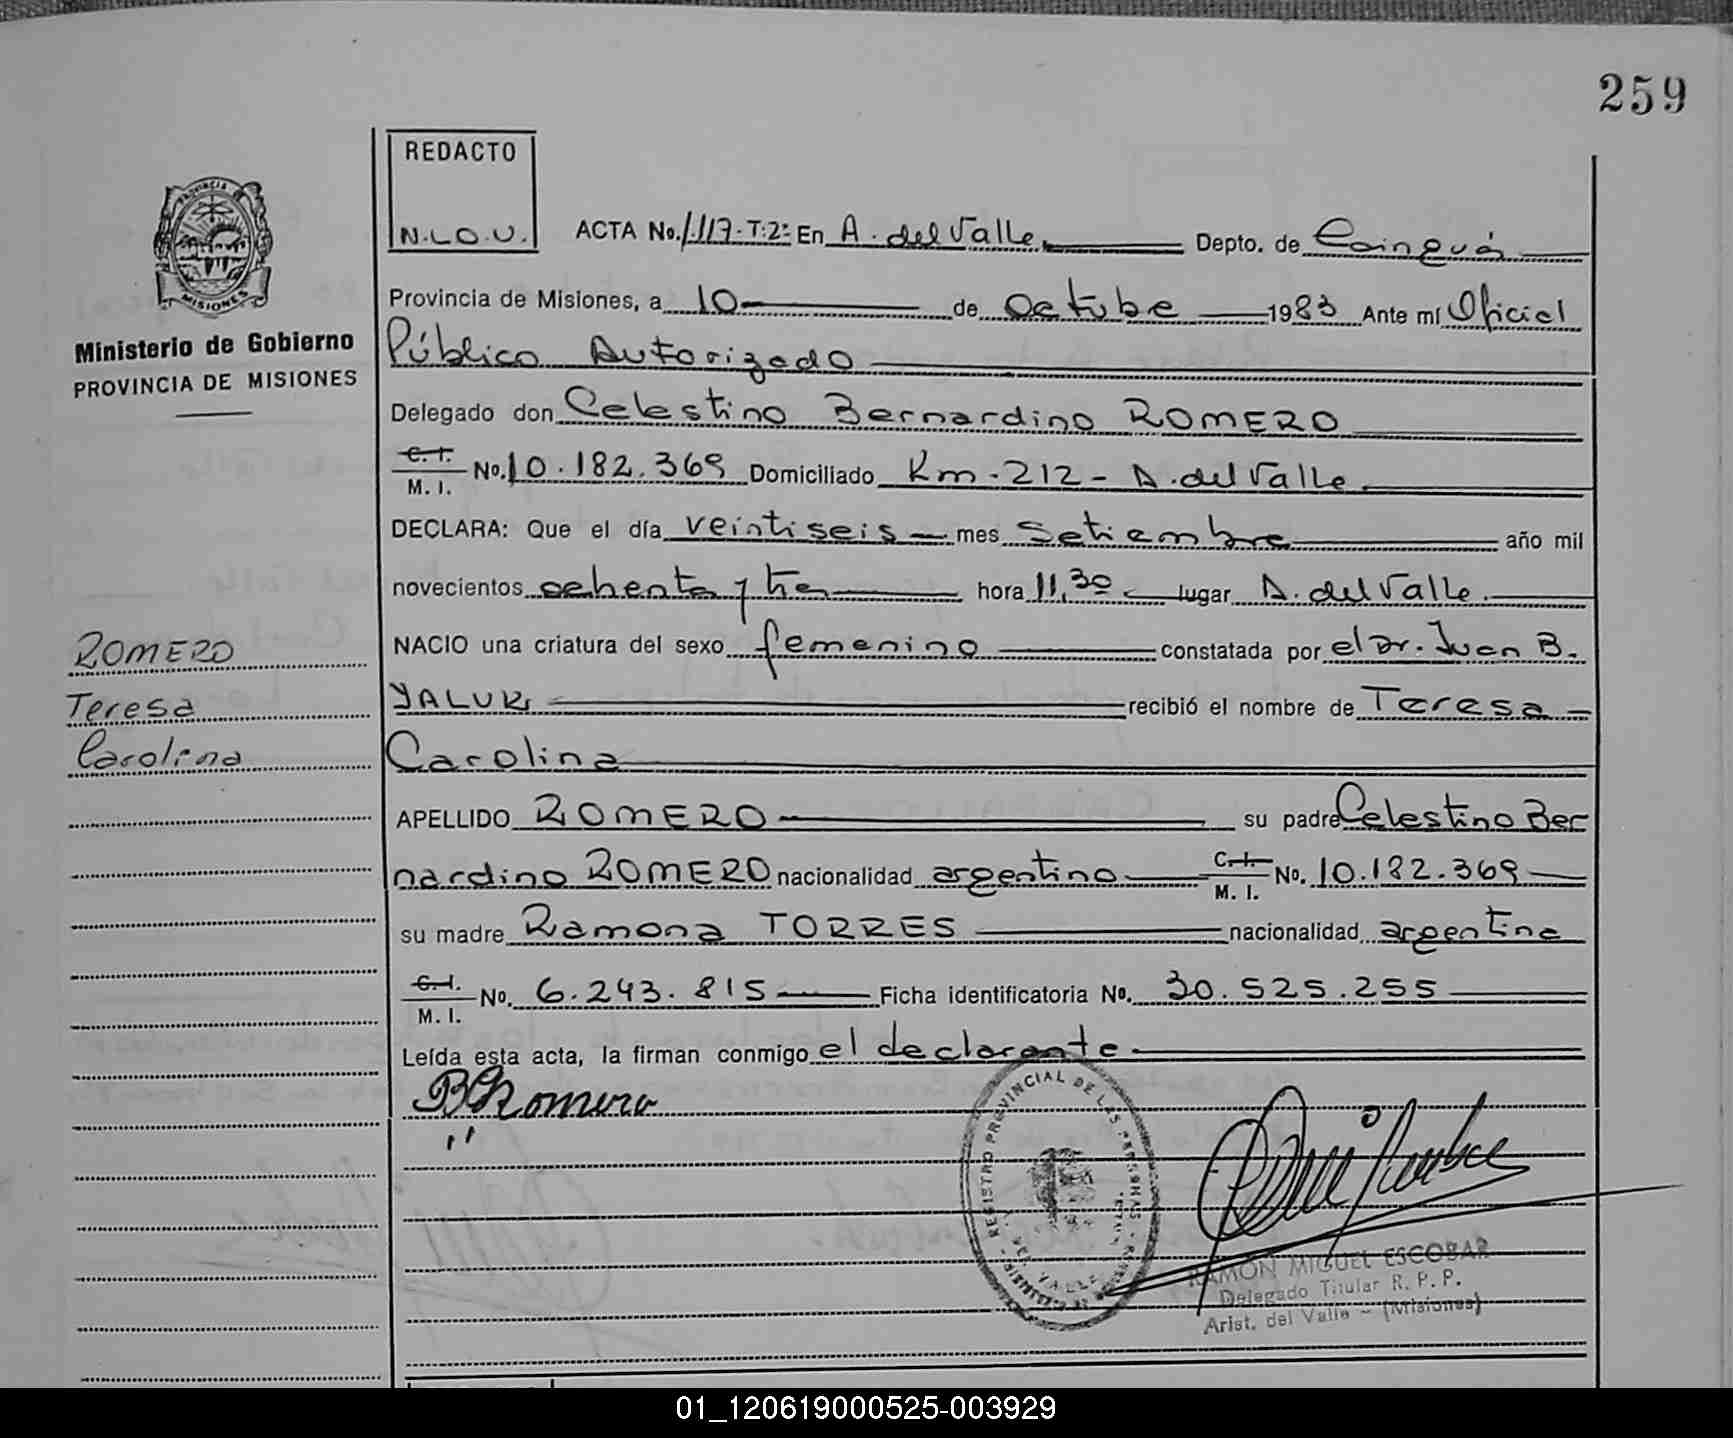 259
REDACTO
N.L.O.U.
ACTA No. 1.117-T:2º En A. del Valle Depto. de Cainguás
Provincia de Misiones, a 10 de Octubre 1983 Ante mí Oficial
Público Autorizado
Delegado don Celestino Bernardino ROMERO
C. I.
M. I. No. 10.182.369 Domiciliado Km-212- A. del Valle
DECLARA: Que el día veintiseis mes Setiembre año mil
novecientos ochenta y tres hora 11,30 lugar A. del Valle.
NACIO una criatura del sexo femenino constatada por el Dr. Juan B.
YALUK recibió el nombre de Teresa
Carolina
APELLIDO ROMERO su padre Celestino Ber
nardino ROMERO nacionalidad argentino C. I.
M. I. No. 10.182.369
su madre Ramona TORRES nacionalidad argentina
C. I.
M. I. No. 6.243.815 Ficha identificatoria No. 30.525.255
Leída esta acta, la firman conmigo el declarante
Romero
PROVINCIA
MISIONES
Ministerio de Gobierno
PROVINCIA DE MISIONES
ROMERO
Teresa
Carolina
REGISTRO PROVINCIAL DE LAS PERSONAS
VALLE
RAMON MIGUEL ESCOBAR
Delegado Titular R. P. P.
Arist. del Valle - (Misiones)
01_120619000525-003929